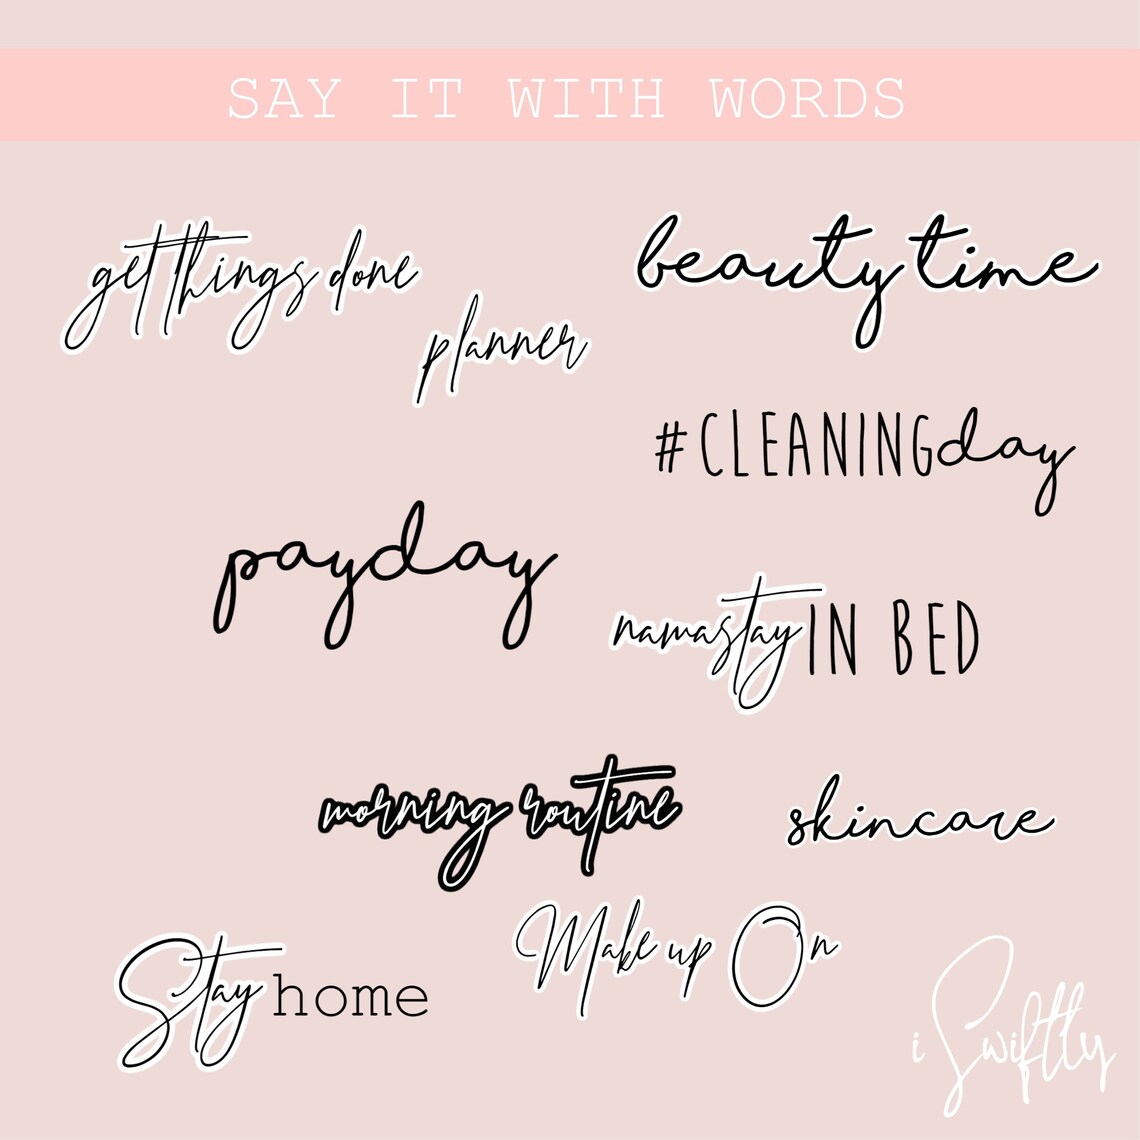 SAY IT WITH WORDS
get things done
planner
beauty time
#CLEANINGday
payday
namastay IN BED
morning routine
skincare
Make up On
Stay home
i Swiftly